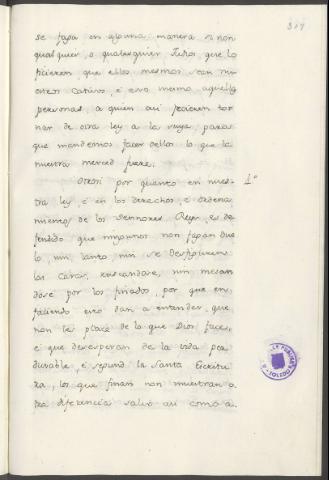 317
se faga en alguna manera si non
qualquier, o qualesquier Judios, que lo
ficieren, que ellos mesmos sean nu
estros Cativos, e eso mesmo aquella
persona, a quien asi ficieren tor
nar de otra ley a la suya, para
que mandemos facer dellos lo que la
nuestra merced fuere.
Otrosi por quanto en nues- 1º
tra ley, e en los derechos, e ordena
mientos de los Sennores Reyes, es de
fendido que ningunos non fagan due
lo, nin llanto, nin se desfiguren
las Caras, rascandose, nin mesan
dose por los finados, por que en
faciendo esto dan a entender, que
non les place de lo que Dios face,
e que desesperan de la vida per
durable, e segund la Santa Escritu
ra, los que finan non muestran o
tra diferencia salvo asi como a